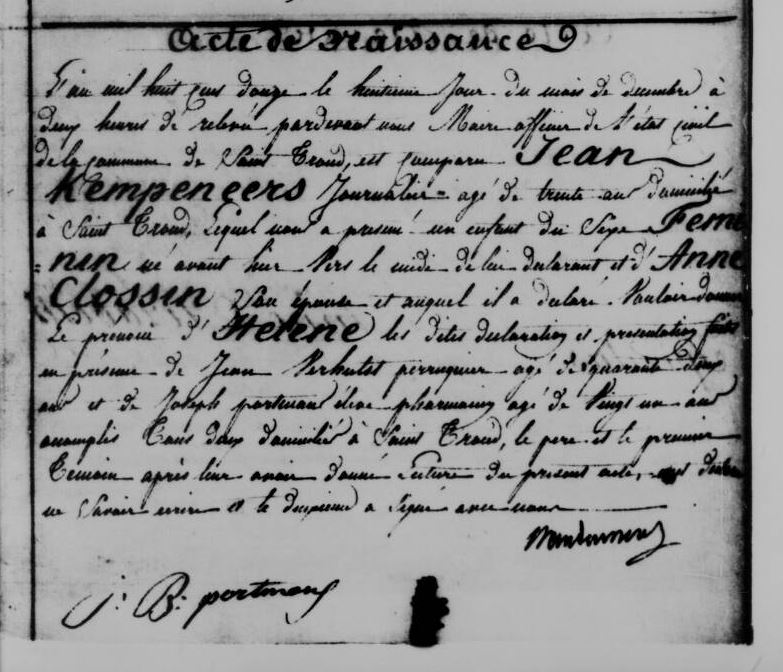 Acte de Naissance
L'an mil huit cens douze le huitieme Jour du mois de decembre à
deux heures de relevée pardevant nous Maire officier de l'état civil
de la commune de Saint Trond, est comparu Jean
Kempeneers Journalier agé de trente ans domicilié
à Saint Trond, Lequel nous a presenté un enfant du Sexe Femi
= nin né avant hier vers le midi de lui declarant et d'Anne
Clossin Son épouse et auquel il a declaré Vouloir donner
Le prenom d'Helene les dites declaration et presentation faites
en présence de Jean Verhulst perruquier agé de quarante deux
ans et de Joseph portmans éleve pharmacien agé de Vingt un ans
accomplis Tous deux domiciliés à Saint Trond, le pere et le premier
Temoin après leur avoir donné Lecture du present acte, ont declaré
ne Savoir ecrire et le deuxieme a Signé avec nous
J: B: portmans